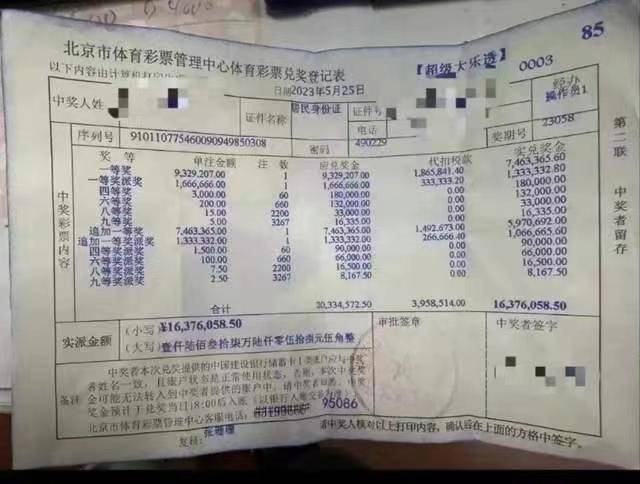 85
北京市体育彩票管理中心体育彩票兑奖登记表
【超级大乐透】 0003
以下内容由计算机打印
日期2023年5月25日
经办
操作员1
中奖人姓 证件名称 居民身份证 证件号
电话
序列号 910110775460090949850308 密码 490229 奖期号 23058
奖等 单注金额 注数 应兑奖金 代扣税款 实兑奖金
一等奖 9,329,207.00 1 9,329,207.00 1,865,841.40 7,463,365.60
一等奖派奖 1,666,666.00 1 1,666,666.00 333,333.20 1,333,332.80
四等奖 3,000.00 60 180,000.00 0.00 180,000.00
六等奖 200.00 660 132,000.00 0.00 132,000.00
八等奖 15.00 2200 33,000.00 0.00 33,000.00
九等奖 5.00 3267 16,335.00 0.00 16,335.00
追加一等奖 7,463,365.00 1 7,463,365.00 1,492,673.00 5,970,692.00
追加一等奖派奖 1,333,332.00 1 1,333,332.00 266,666.40 1,066,665.60
四等奖派奖 1,500.00 60 90,000.00 0.00 90,000.00
六等奖派奖 100.00 660 66,000.00 0.00 66,000.00
八等奖派奖 7.50 2200 16,500.00 0.00 16,500.00
九等奖派奖 2.50 3267 8,167.50 0.00 8,167.50
合计 20,334,572.50 3,958,514.00 16,376,058.50
中奖彩票内容
第二联 中奖者留存
实派金额 (小写) ¥16,376,058.50
(大写) 壹仟陆佰叁拾柒万陆仟零伍拾捌元伍角整
审批签章
中奖者签字
备注
中奖者本次兑奖提供的中国建设银行储蓄卡
者姓名一致，且账户状态是正常使用状态，否则，本次中奖奖
金可能无法转入到中奖者提供的账户中，请中奖者知悉。中奖
奖金预计于兑奖当日18:00后入账
北京市体育彩票管理中心客服电话： 95086
复核：
请中奖人核对以上打印内容，确认后在上面的方格中签字。